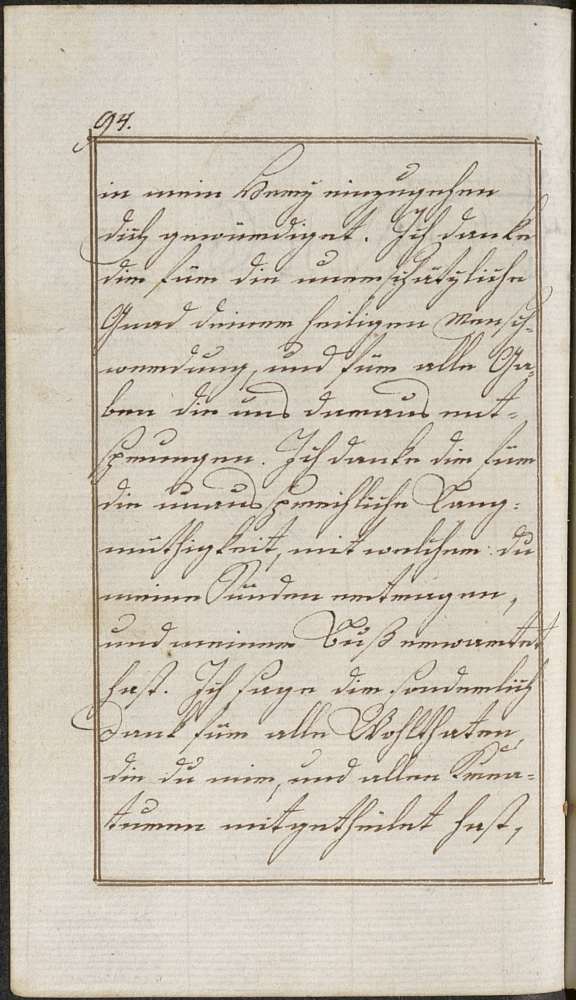 94.
in mein Herz einzugehen
dich gewürdiget. Ich danke
dir für die unerschätzliche
Gnad deiner heiligen Mensch-
werdung, und für alle Ga-
ben die uns daraus ent-
sprungen. Ich danke dir für
die unaussprechliche Lang-
müthigkeit, mit welcher du
meine Sünden ertragen,
und meiner Buß erwartet
hast. Ich sage dir sonderlich
Dank für alle Wohlthaten,
die du mir, und allen Krea-
turen mitgetheilet hast,